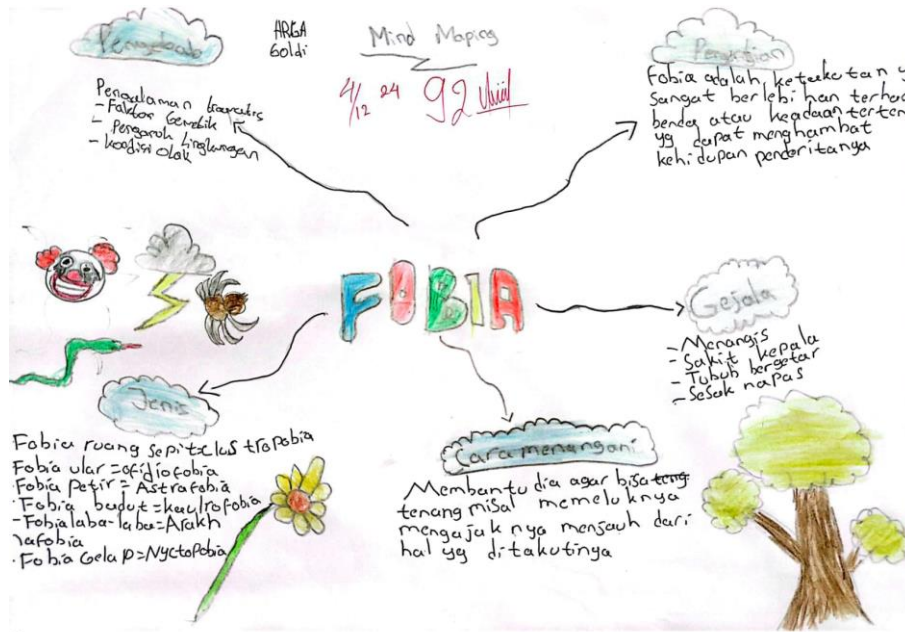 Penyebab
ARGA
Goldi
Mind Maping
4/12 24
92
Pengertian
Pengalaman traumatis
- Faktor Genetik
- Pengaruh Lingkungan
- kondisi Otak
Fobia adalah ketakutan y
sangat berlebihan terhad
benda atau keadaan terten
yg dapat menghambat
kehidupan penderitanya
FOBIA
Gejala
- Menangis
- Sakit kepala
- Tubuh bergetar
- Sesak napas
Jenis
Fobia ruang sepit=clas tropobia
Fobia ular = ofidiofobia
Fobia petir = Astrafobia
· Fobia badut = kaulrofobia
- Fobia laba-laba = Arakh
nafobia
· Fobia Gelap = Nyctopobia
Cara menangani
Membantu dia agar bisa teng
tenang misal memeluknya
mengajak nya menjauh dari
hal yg ditakutinya